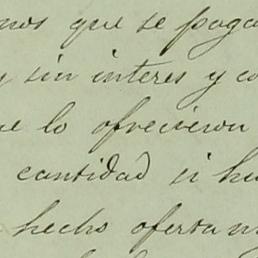 mos que se paga
y sin interes y co
ue lo ofrecieron
cantidad si hu
hecho oferta m